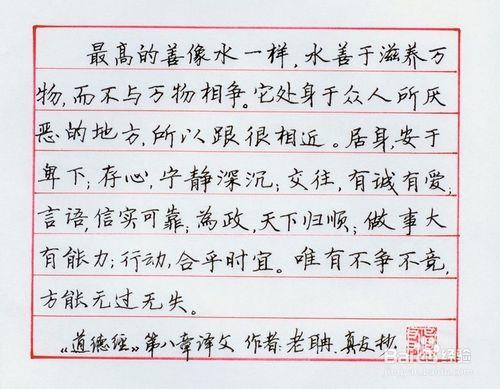 最高的善像水一样,水善于滋养万
物,而不与万物相争。它处身于众人所厌
恶的地方,所以跟很相近。居身,安于
卑下;存心,宁静深沉;交往,有诚有爱;
言语,信实可靠;為政,天下归顺;做事大
有能力;行动,合乎时宜。唯有不争不竞,
方能无过无失。
《道德经》第八章译文 作者:老聃.真友抄.
Baidu经验
jingyan.baidu.com